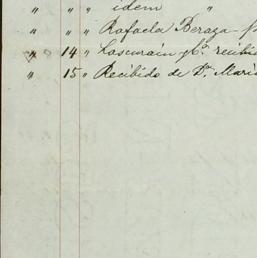 " " " idem "
" " " Rafaela Beraza
" 14 " Lascurain y Ca. recibi
" 15 " Recibido de Dn. Maria